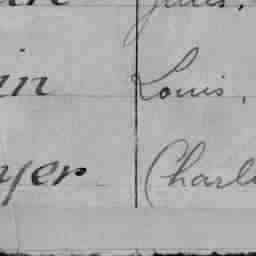 Jules,
in Louis,
yer Charl